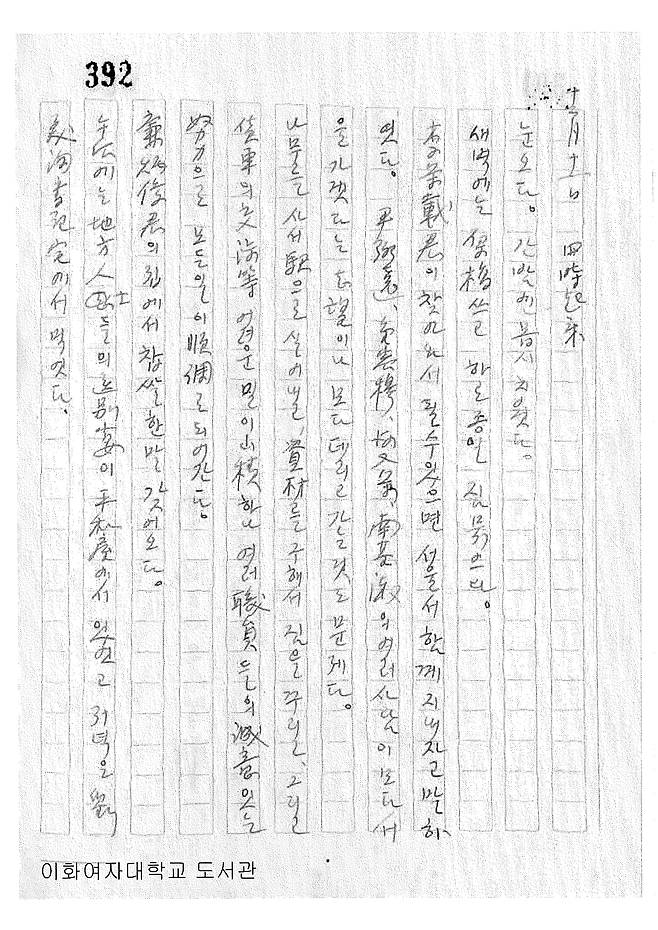 392
十二月十二日 四時起床
눈오다。 간밤엔 몹시 치웟다。
새벽에는 原稿쓰고 하로종일 짐묶으다。
載君이 찾아와서 될수있으면 서울서 함께 지내자고 말하
엿다。 尹 南基 의 여러사람이 모다 서
을 가겟다는 希望이나 모다 데리고 가는것도 문제다。
나무를 사서 駅으로 실어내고, 資材를 구해서 짐을 꾸리고, 그리고
貨車의 交涉等 어려운 일이 山積하나 여러 職員들의 誠意있는
努力으로 모든일이 順調로 되어간다。
俊君의 집에서 찹쌀 한말 갖어오다。
낮에는 地方人士들의 送別宴이 平和屋에서 있었고 저녁은 劉
宅에서 먹엇다。
이화여자대학교 도서관